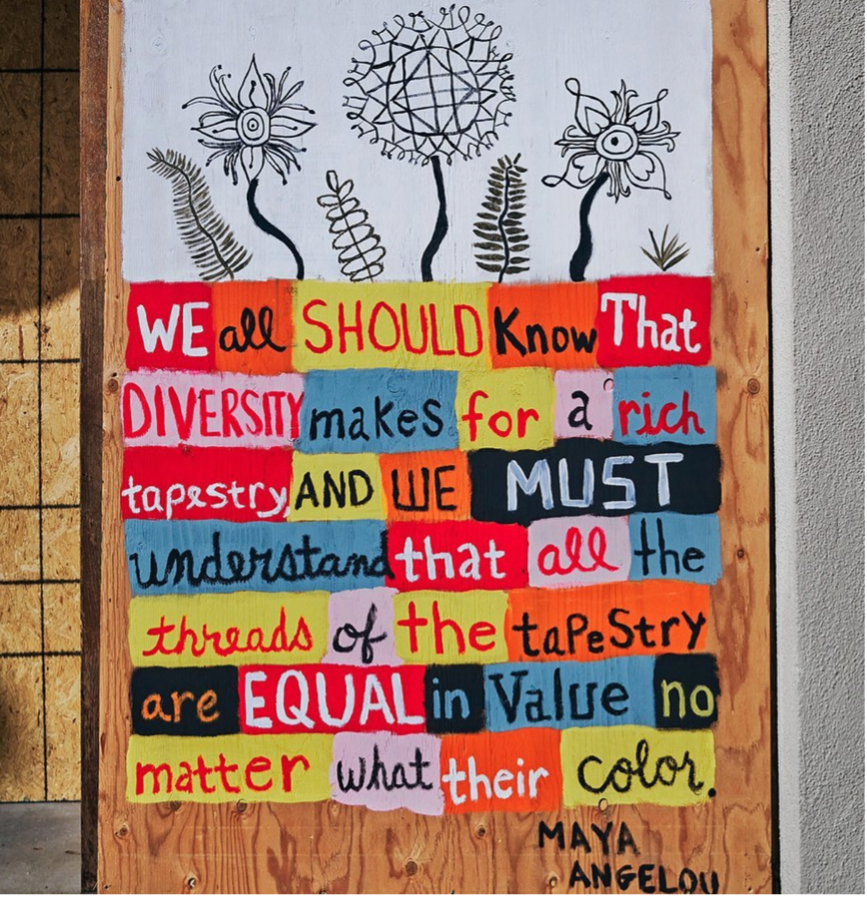 WE all SHOULD Know That
DIVERSITY makes for a rich
tapestry, AND WE MUST
understand that all the
threads of the taPeStry
are EQUAL in Value no
matter what their color.
MAYA
ANGELOU